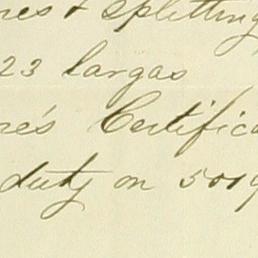 & splitting
23 largas
re's Certifica
duty on 5019